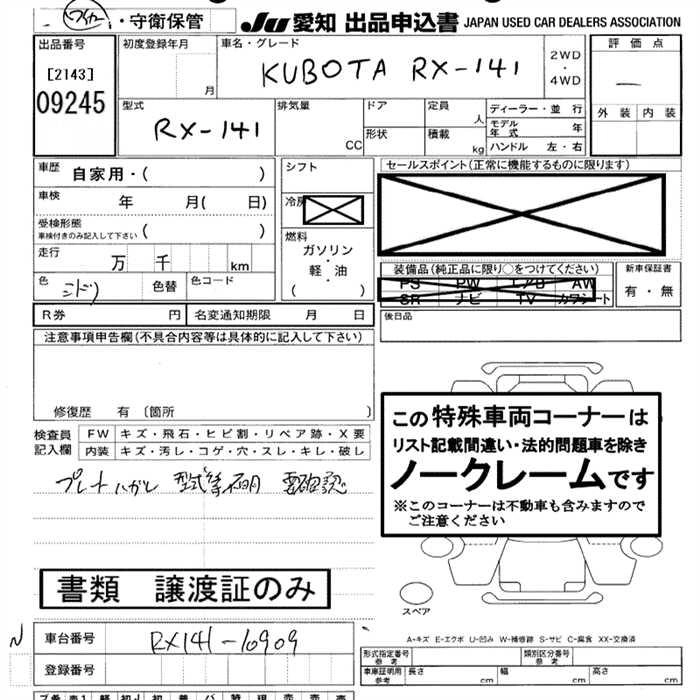 ワイヤー・守衛保管
JU 愛知 出品申込書 JAPAN USED CAR DEALERS ASSOCIATION
出品番号
[2143]
09245
初度登録年月
月
車名・グレード
KUBOTA RX-141
2WD
・
4WD
評価点
—
外装 内装
型式
RX-141
排気量
CC
ドア
形状
定員
人
積載
kg
ディーラー・並 行
モデル年式
年
ハンドル 左・右
車歴
自家用・( )
車検
年 月( 日)
受検形態
車検付きのみ記入して下さい ( )
走行
万 千 km
色
ミドリ
色替
色コード
シフト
冷房
燃料
ガソリン
・
軽・油
( )
セールスポイント(正常に機能するものに限ります)
装備品(純正品に限り○をつけてください)
PS PW エアB AW
SR ナビ TV カワシート
新車保証書
有・無
R券 円
名変通知期限 月 日
後日品
注意事項申告欄(不具合内容等は具体的に記入して下さい)
修復歴 有 〔箇所 〕
検査員記入欄
FW キズ・飛石・ヒビ割・リペア跡・X要
内装 キズ・汚し・コゲ・穴・スレ・キレ・破し
プレートハガレ 型式等不明 要確認
この特殊車両コーナーは
リスト記載間違い・法的問題車を除き
ノークレームです
※このコーナーは不動車も含みますので
ご注意ください
書類 譲渡証のみ
スペア
A-キズ E-エクボ U-凹み W-補修跡 S-サビ C-腐食 XX-交換済
N
車台番号
RX141-10909
登録番号
型式指定番号
参考
類別区分番号
参考
車庫証明用
参考
長さ cm
幅 cm
高さ cm